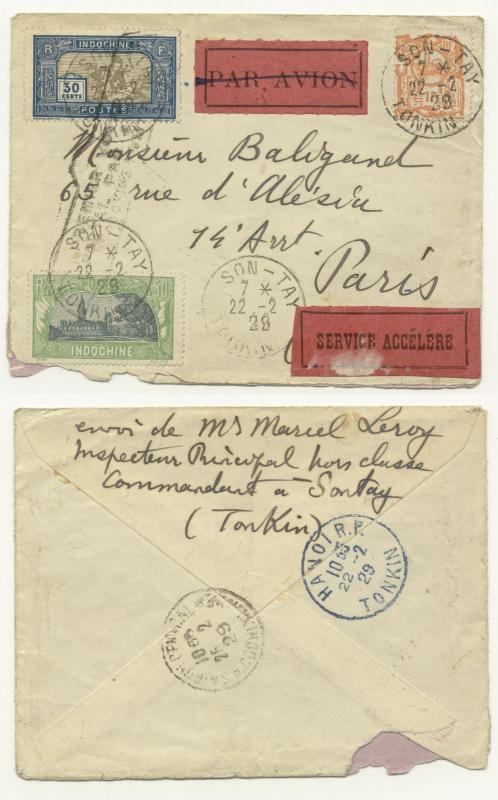 R INDOCHINE F
30 CENTS
POSTES
PAR AVION
SON-TAY
7 *
22 -2
29
TONKIN
Monsieur Baligand
65 rue d'Alésia
14e Arrt
Paris
SON-TAY
7 *
22 -2
29
TONKIN
SON-TAY
7 *
22 -2
29
TONKIN
INDOCHINE
SERVICE ACCÉLÉRÉ
envoi de Mr Marcel Leroy
Inspecteur Principal hors classe
Commandant à Sontay
(Tonkin)
HANOI R.P.
10 35
22 -2
29
TONKIN
25
2
29